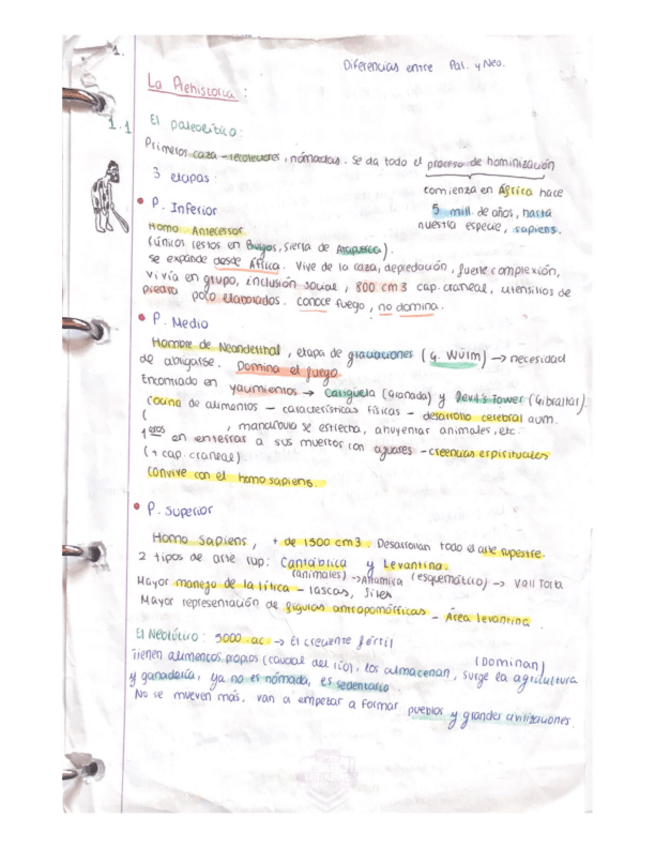 1.
Diferencias entre Pal. y Neo.
La Prehistoria :
1.1 El paleolítico:
Primeros caza - recolectores, nómadas. Se da todo el proceso de hominización
3 etapas.
comienza en África hace
5 mill. de años, hasta
nuestra especie, sapiens.
• P. Inferior
Homo Antecessor
(únicos restos en Burgos, sierra de Atapuerca).
se expande desde África. Vive de la caza, depredación, fuerte complexión,
vivía en grupo, inclusión social, 800 cm3 cap. craneal, utensilios de
piedra poco elaborados. conoce fuego, no domina.
• P. Medio
Hombre de Neanderthal, etapa de glaciaciones (G. Würm) → necesidad
de abrigarse. Domina el fuego.
Encontrado en yacimientos → Carigüela (Granada) y Devil's Tower (Gibraltar).
Cocina de alimentos - características físicas - desarrollo cerebral aum.
( , mandíbula se estrecha, ahuyentar animales, etc.
1eros en enterrar a sus muertos con ajuares - creencias espirituales
(+ cap. craneal)
Convive con el homo sapiens.
• P. Superior
Homo Sapiens, + de 1500 cm3. Desarrollan todo el arte rupestre.
2 tipos de arte rup: Cantábrica y Levantina.
(animales) → Altamira (esquemático) → Valltorta
Mayor manejo de la lítica - lascas, sílex
Mayor representación de figuras antropomórficas - Área levantina.
El Neolítico: 5000 ac → El creciente fértil
Tienen alimentos propios (caudal del río), los almacenan, surge la agricultura (Dominan)
y ganadería, ya no es nómada, es sedentario.
No se mueven más, van a empezar a formar pueblos y grandes civilizaciones.